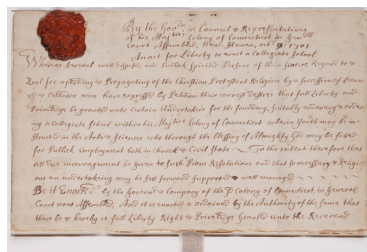 By the Govr, in Council & Representatives
of his Majties Colony of Connecticut in Genrll
Court Assembled, New-Haven, octr 9: 1701
An act for Liberty to erect a collegiate school
Whereas several well disposed, and Publick Spirited Persons of their Sincere Regard to &
Zeal for upholding & Propagating of the Christian Protestant Religion by a succession of Learned
& orthodox men have expressed by Petition their earnest desires that full Liberty and
Priviledge be granted unto certain Undertakers for the founding, suitably endowing & ordering
a collegiate school within his Majties Colony of Connecticut wherein Youth may be in
structed in the Arts & Sciences who thorough the blessing of Almighty God may be fitted
for Publick employment both in church & civil State To the intent therefore that
all due incouragement be Given to such Pious Resolutions and that so necessary & Religi
ous an undertaking may be sett forward supported & well managed
Be it Enacted by the Governr & Company of the sd Colony of Connecticut in General
Court now Assembled, And it is enacted & ordained by the Authority of the same that
there be & hereby is full Liberty Right & Priviledge Granted unto the Reverend